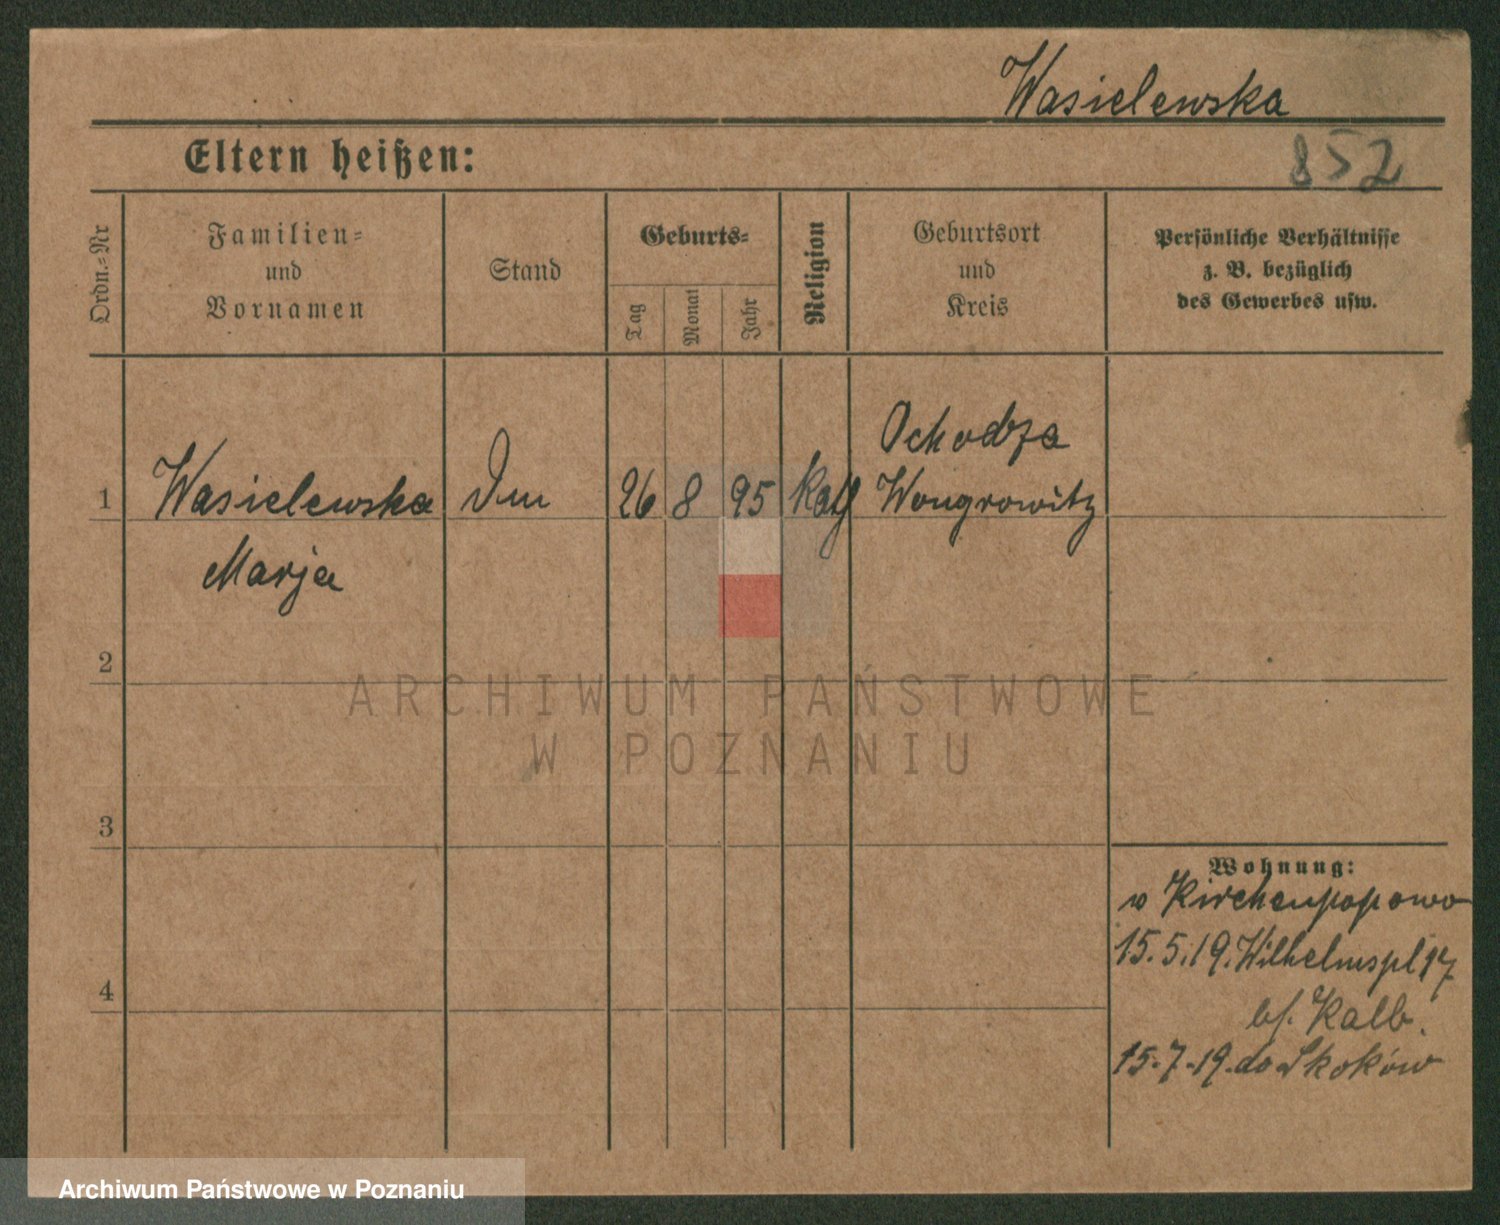 Wasielewska
Eltern heißen:
852
Ordn.=Nr
Familien=
und
Vornamen
Stand
Geburts=
Tag
Monat
Jahr
Religion
Geburtsort
und
Kreis
Persönliche Verhältnisse
z. B. bezüglich
des Gewerbes usw.
1
Wasielewska
26
8
95
Ochodza
Wongrowitz
Marja
2
ARCHIWUM PAŃSTWOWE
W POZNANIU
3
Wohnung:
w Kirchenpopowo
15.5.19. Wilhelmspl 17
4
bf. Kalb.
15.7.19. do Skoków
Archiwum Państwowe w Poznaniu